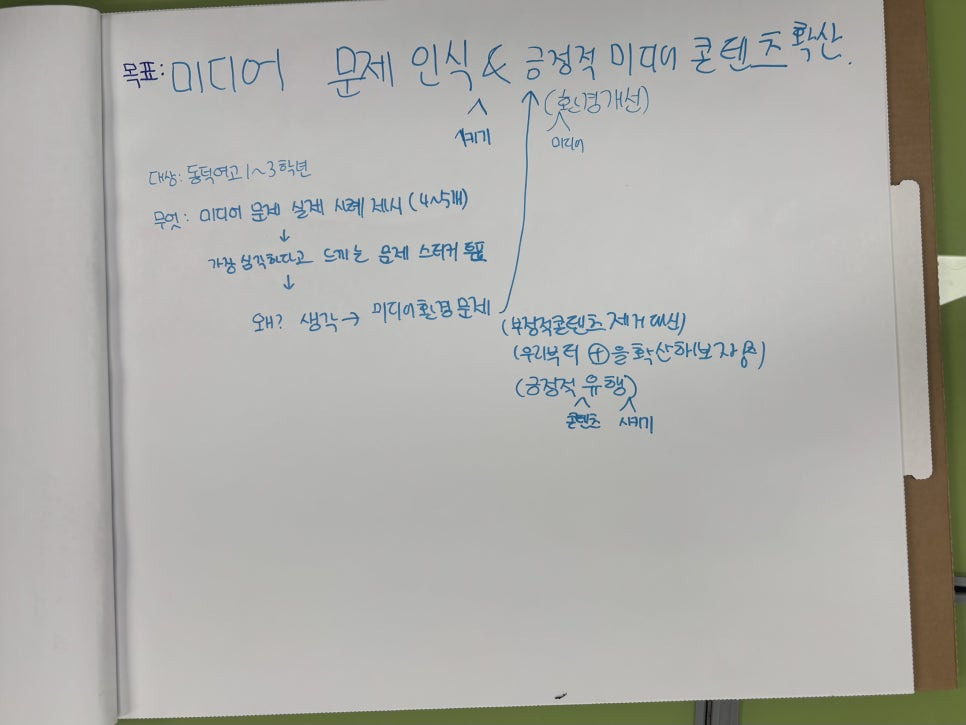 목표: 미디어 문제 인식 & 긍정적 미디어 콘텐츠 확산.
시키기
(환경개선)
미디어
대상: 동덕여고 1~3학년
무엇: 미디어 문제 실제 사례 제시 (4~5개)
↓
가장 심각하다고 느끼는 문제 스티커 투표
↓
왜? 생각 → 미디어환경문제
(부정적콘텐츠 제거 대신)
(우리부터 ⊕을 확산해보자)
(긍정적 유행)
콘텐츠 시키기